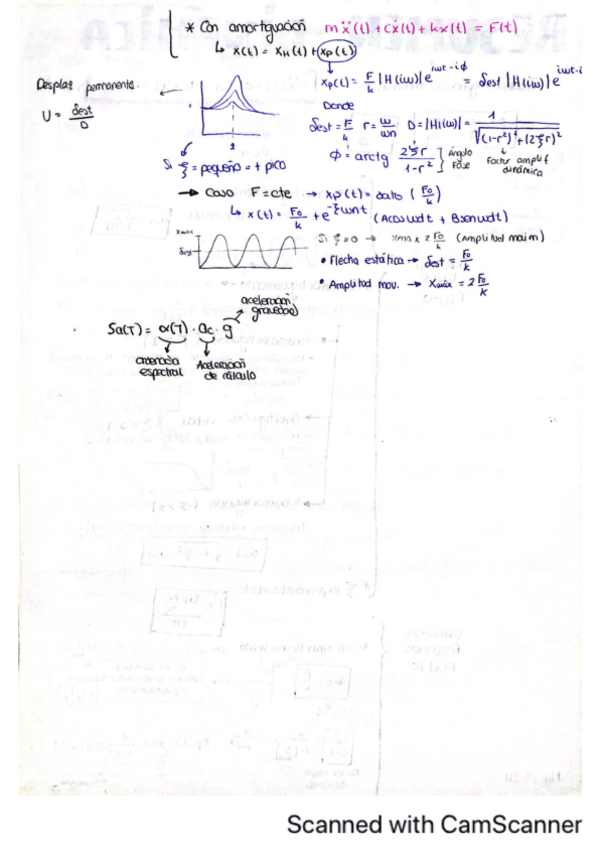 * Con amortguación mẍ(t) + cẋ(t) + kx(t) = F(t)
↳ x(t) = xH(t) + xp(t)
Desplaz permanente.
U = δest/D
xp(t) = F/k |H(iω)| e^iωt-iφ = δest |H(iω)| e^iωt-i
Donde
δest = F/k r = ω/ωn D = |H(iω)| = 1/√((1-r²)²+(2ξr)²)
φ = arctg 2ξr/1-r² ] ángulo fase
Factor amplif dinámica
Si ξ = pequeño = + pico
→ Caso F = cte → xp(t) = dato (F0/k)
↳ x(t) = F0/k + e^-ξωnt (A cos ωdt + B sen ωdt)
Si ξ=0 → xmax 2 F0/k (Amplitud maim)
δest
• Flecha estática → δest = F0/k
• Amplitud mov. → xmáx = 2 F0/k
aceleración gravedad
Sa(T) = α(T) · ac · g
ordenada espectral
Aceleración de cálculo
Scanned with CamScanner